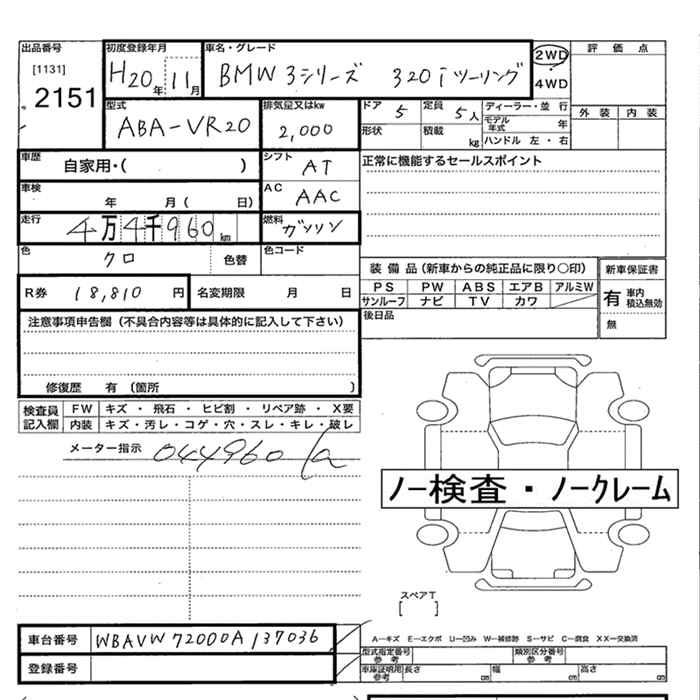 出品番号 [1131] 2151
初度登録年月 H20年 11月
車名・グレード BMW 3シリーズ 320iツーリング
2WD ・ 4WD
評価点
外装 内装
型式 ABA-VR20
排気量又はkw 2,000
ドア 5 定員 5人
形状 積載 kg
ディーラー・並行
モデル年式 年
ハンドル 左・右
車歴 自家用・( )
シフト AT
正常に機能するセールスポイント
車検 年 月( 日)
AC AAC
走行 4万4千960km
燃料 ガソリン
色 クロ 色替
色コード
装備品(新車からの純正品に限り○印)
PS PW ABS エアB アルミW
サンルーフ ナビ TV カワ
新車保証書
有 車内積込無効
無
R券 18,810円
名変期限 月 日
後日品
注意事項申告欄(不具合内容等は具体的に記入して下さい)
修復歴 有(箇所 )
検査員記入欄
FW キズ ・ 飛石 ・ ヒビ割 ・ リペア跡 ・ X要
内装 キズ・汚レ・コゲ・穴・スレ・キレ・破レ
メーター指示 044960
ノー検査・ノークレーム
スペアT
[ ]
車台番号 WBAVW72000A137036
登録番号
A－キズ E－エクボ U－凹み W－補修跡 S－サビ C－腐食 XX－交換済
型式指定番号 参考
類別区分番号 参考
車庫証明用 参考 長さ cm 幅 cm 高さ cm